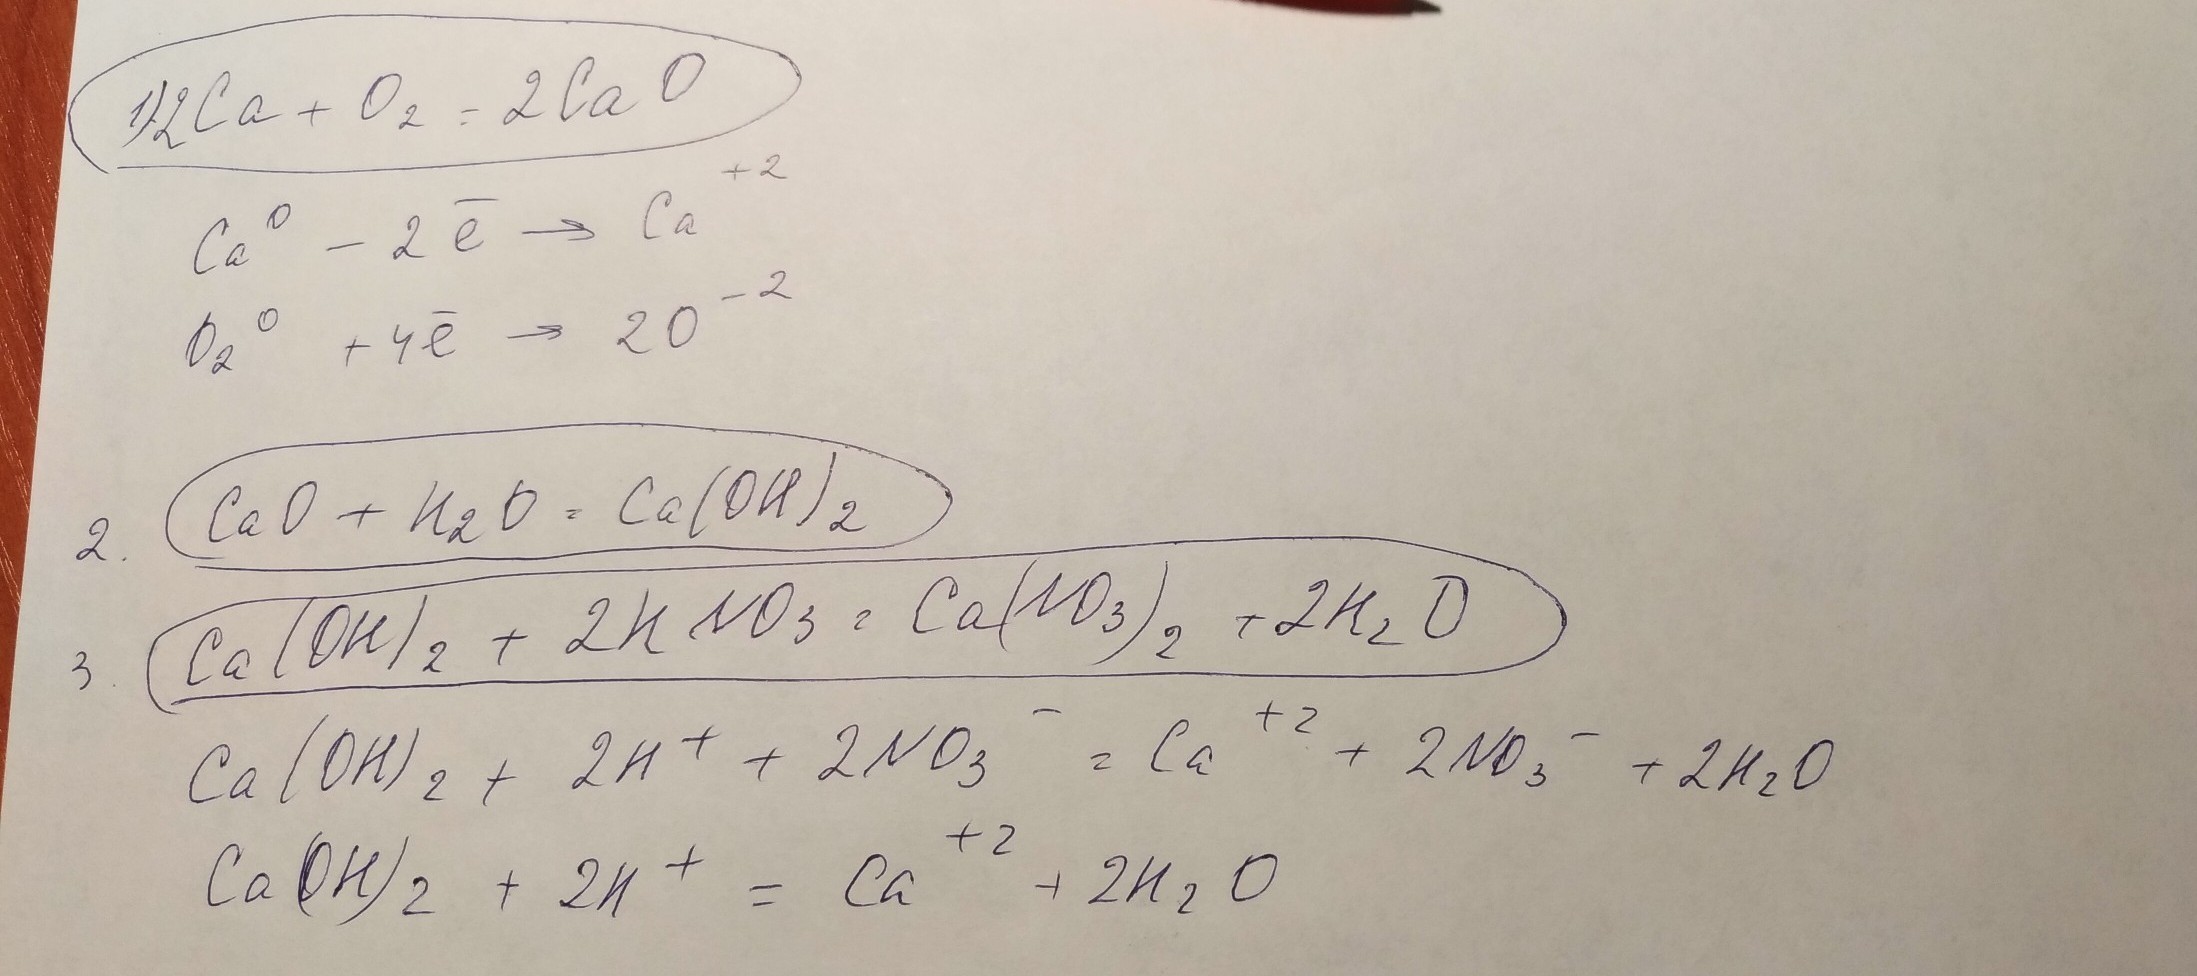 1) 2Ca + O₂ = 2CaO
Ca⁰ – 2ē → Ca⁺²
O₂⁰ + 4ē → 2O⁻²
2. CaO + H₂O = Ca(OH)₂
3. Ca(OH)₂ + 2HNO₃ = Ca(NO₃)₂ + 2H₂O
Ca(OH)₂ + 2H⁺ + 2NO₃⁻ = Ca⁺² + 2NO₃⁻ + 2H₂O
Ca(OH)₂ + 2H⁺ = Ca⁺² + 2H₂O